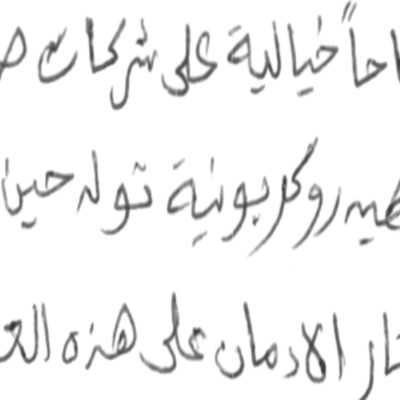 احاً خيالية على شركات ص
هيدروكربونية تولد حين
ار الادمان على هذه الع